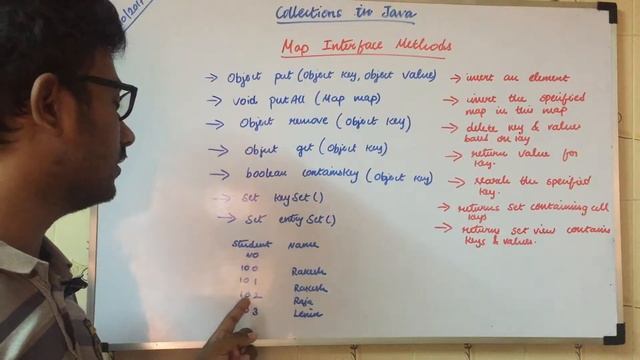 20/2017
Collections in Java
Map Interface Methods
→ Object put (Object key, object value) → insert an element
→ void putAll (Map map) → insert the specified map in this map
→ Object remove (Object key) → delete key & values based on key
→ Object get (Object key) → returns value for key.
→ boolean containsKey (Object key) → search the specified key.
→ Set keySet() → returns set containing all keys
→ Set entrySet() → returns set view contains keys & values.
Student NO Name
100 Rakesh
101 Rakesh
102 Raja
103 Lenin